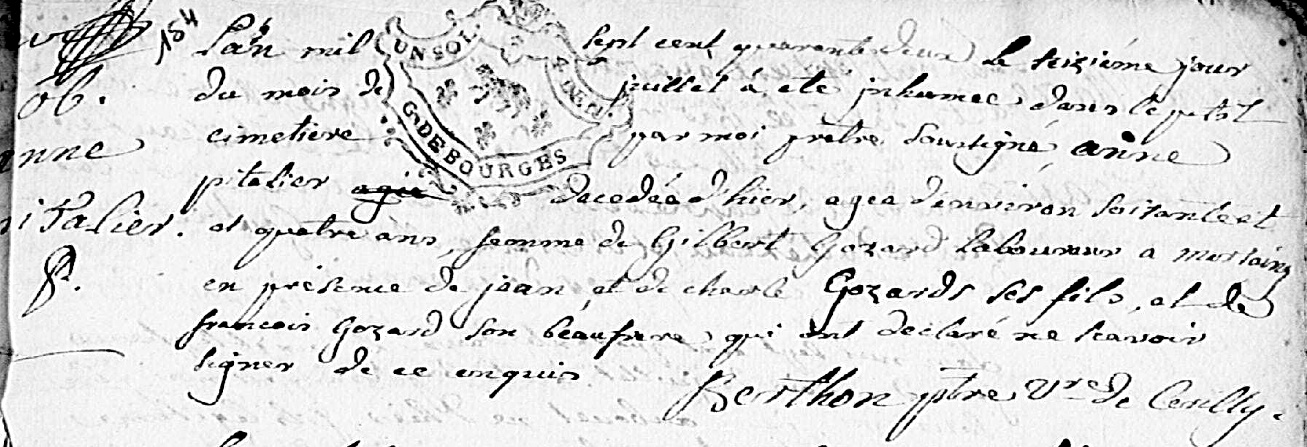 184
ob.
anne
pitalier.
L'an mil sept cent quarante deux le seizième jour
du mois de juillet a été inhumee dans le petit
cimetiere par moi prêtre soussigné, anne
pitalier agée decedéé d'hier, agéé d'environ soixante et
et quatre ans, femme de Gilbert Gozard laboureur a
en présence de jean, et de charle Gozards ses fils, et de
francois Gozard son béaufrere, qui ont declaré ne scavoir
signer de ce enquis
Berthon ptre V.re de Ceully.
UN SOL.
G. DE BOURGES